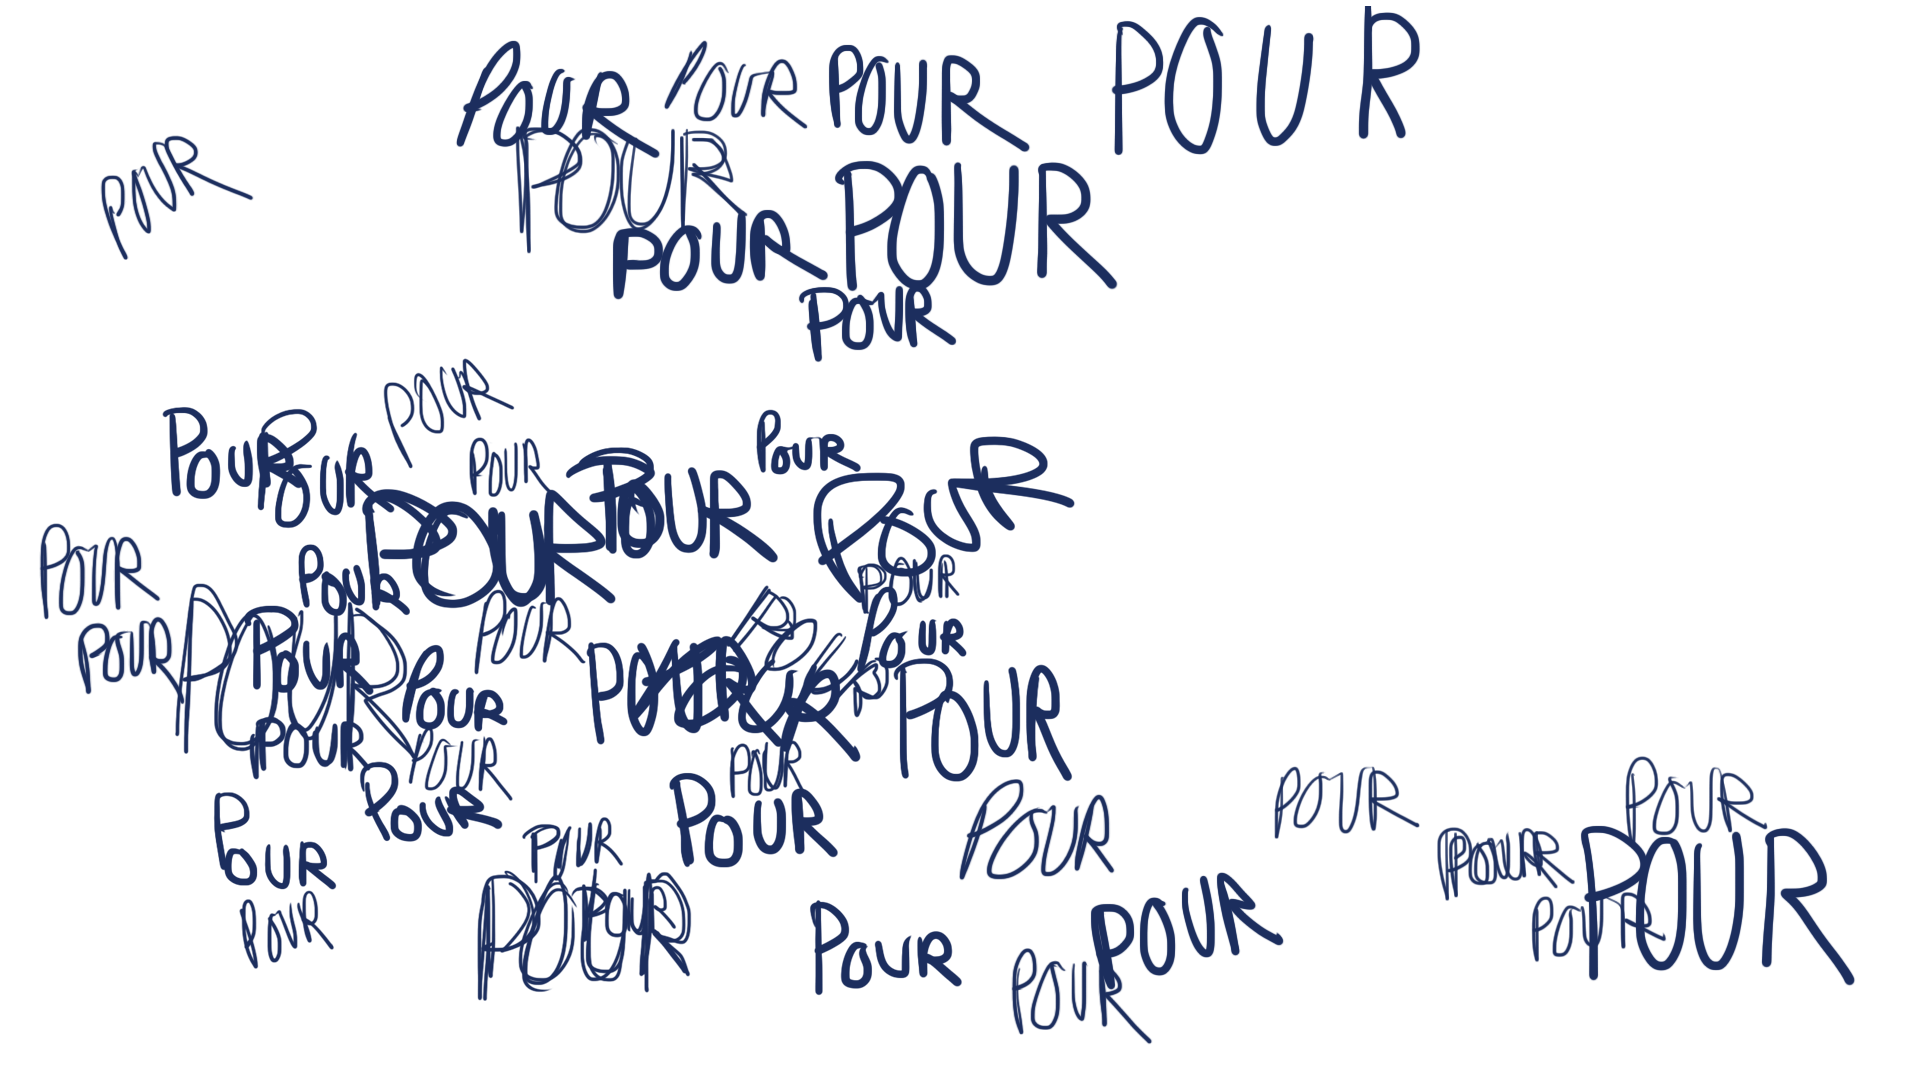 POUR POUR POUR POUR
POUR
POUR
POUR POUR
POUR
POUR
POUR POUR POUR POUR
POUR POUR POUR
POUR POUR
POUR
POUR POUR POUR
POUR POUR POUR
POUR POUR POUR
POUR POUR POUR
POUR POUR
POUR POUR POUR
POUR POUR POUR POUR
POUR POUR POUR
POUR POUR POUR
POUR POUR POUR
POUR